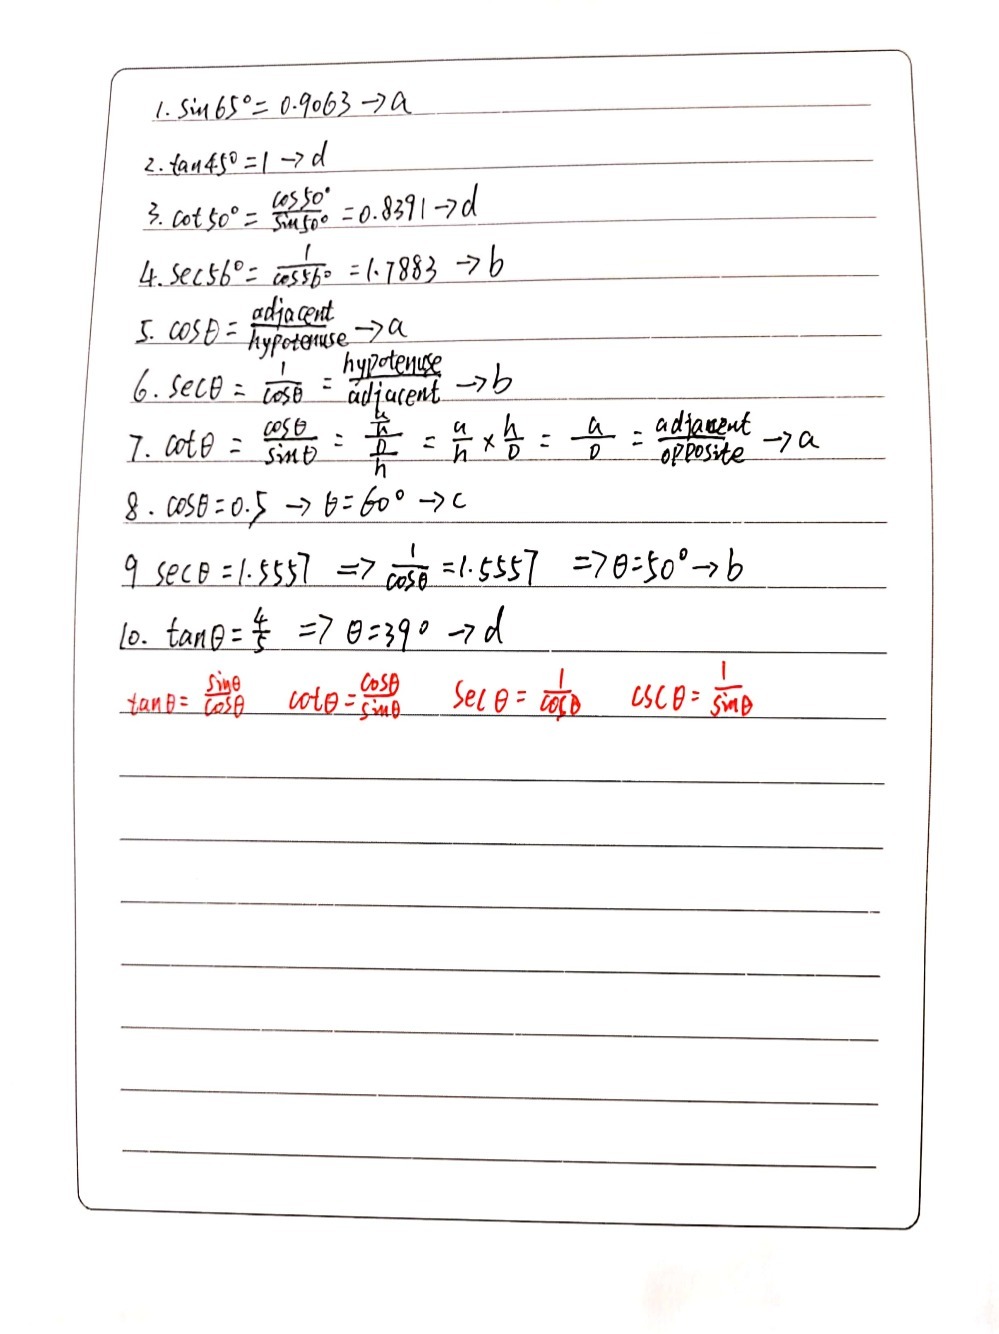 1. sin65°= 0.9063 →a
2. tan45°=1 →d
3. cot50°= cos50°/sin50° =0.8391→d
4. sec56°= 1/cos56° =1.7883 →b
5. cosθ= adjacent/hypotenuse →a
6. secθ = 1/cosθ = hypotenuse/adjacent →b
7. cotθ = cosθ/sinθ = (a/h)/(o/h) = a/h × h/o = a/o = adjacent/opposite →a
8. cosθ=0.5 → θ=60° →c
9 secθ=1.5557 => 1/cosθ =1.5557 =>θ=50°→b
10. tanθ= 4/5 => θ=39° →d
tanθ= sinθ/cosθ cotθ= cosθ/sinθ secθ= 1/cosθ cscθ= 1/sinθ